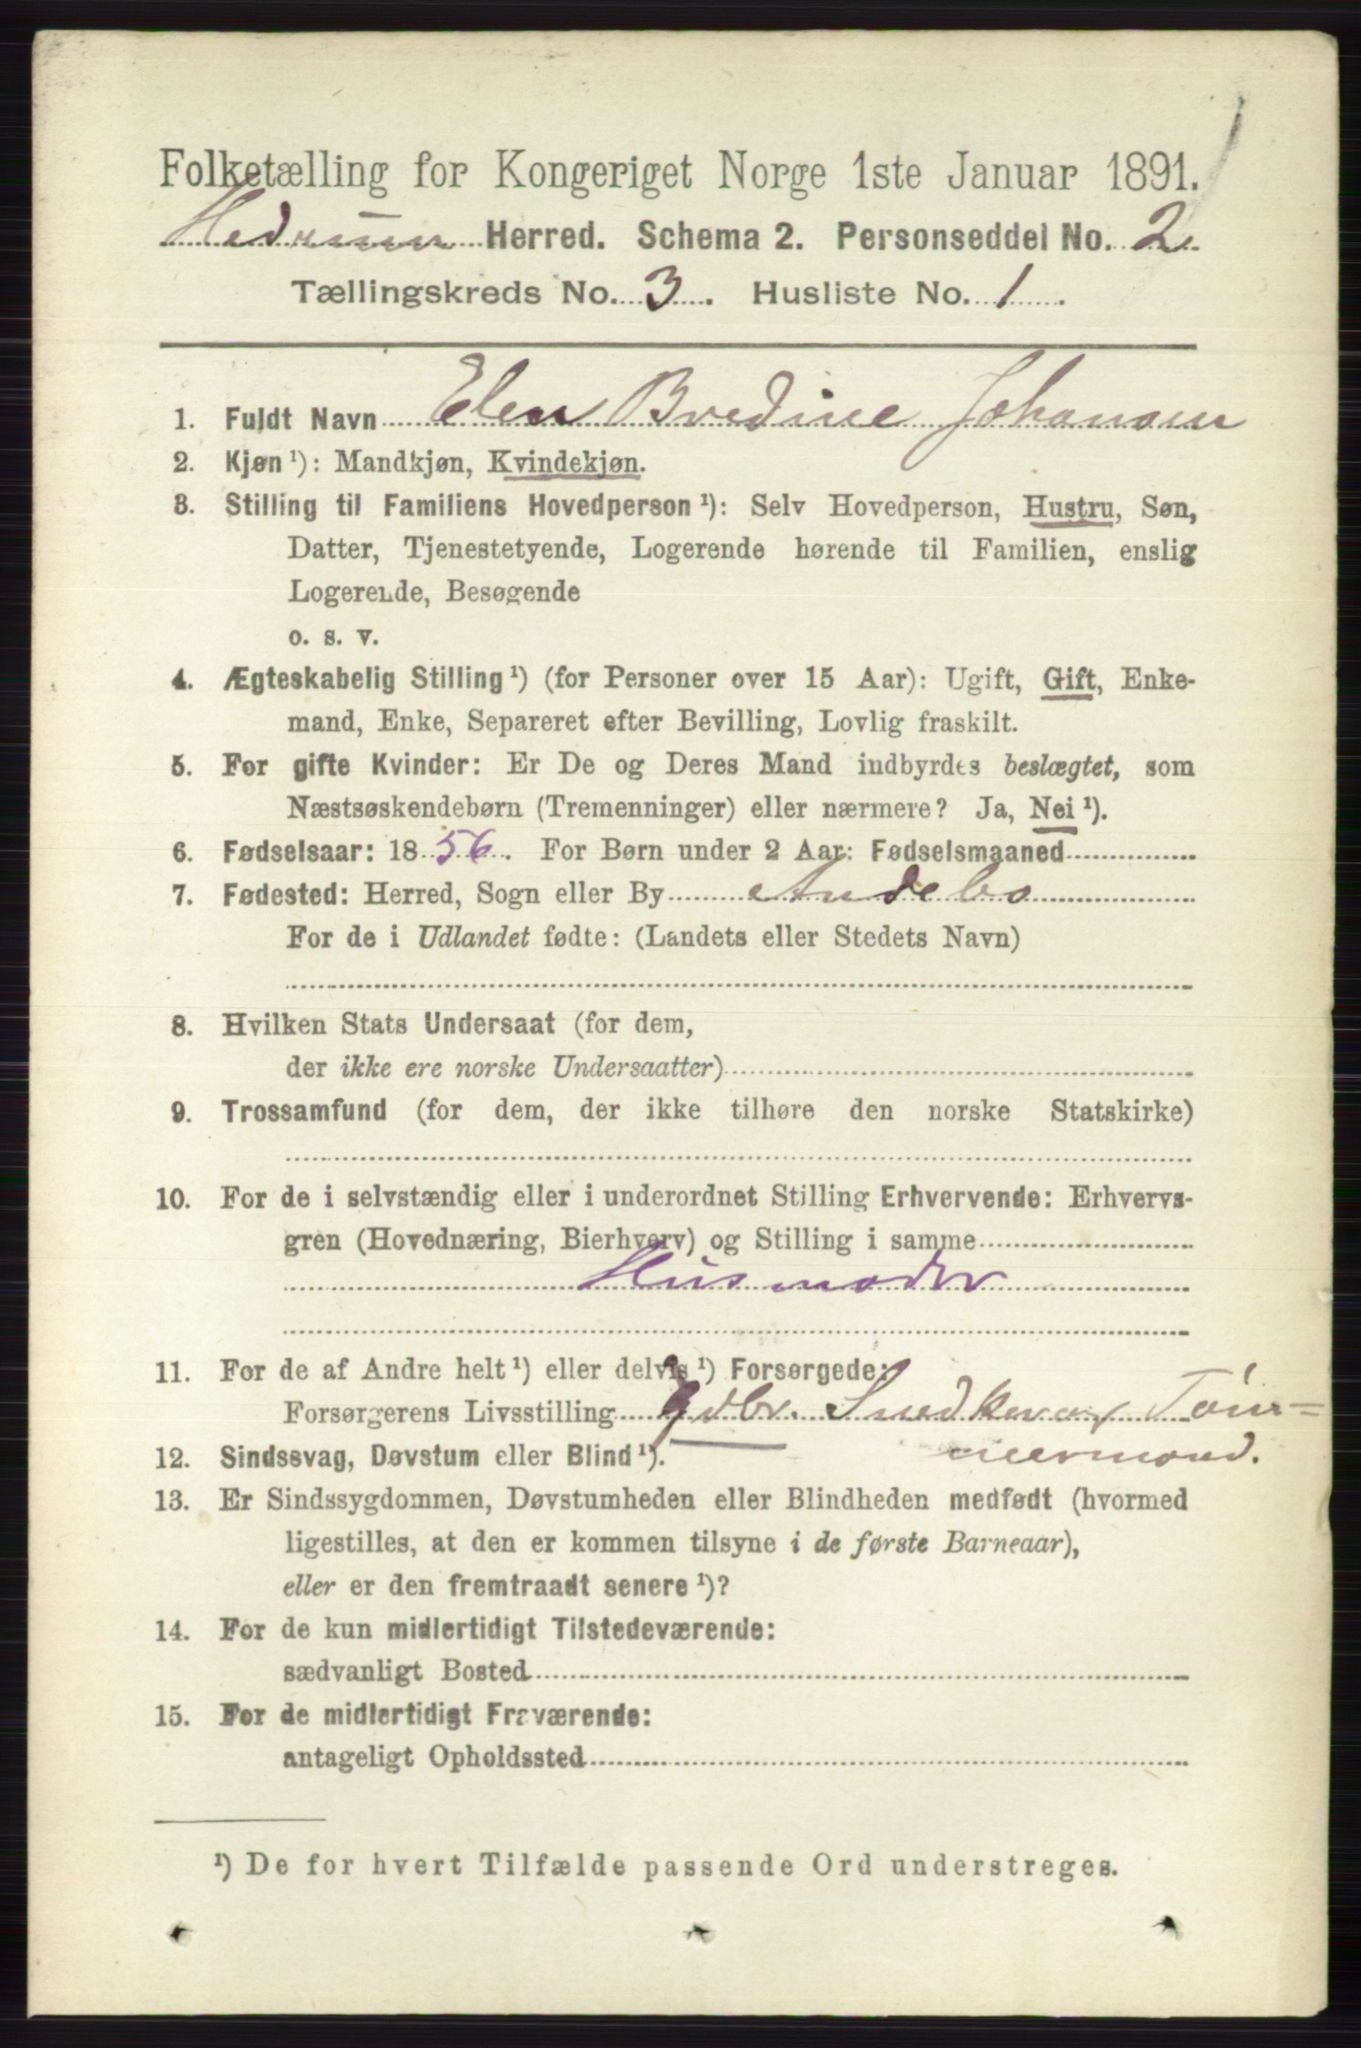 Folketælling for Kongeriget Norge 1ste Januar 1891.
Hedrum Herred. Schema 2. Personseddel No. 2
Tællingskreds No. 3. Husliste No. 1.
1. Fuldt Navn Elen Bredine Johansen
2. Kjøn ¹): Mandkjøn, Kvindekjøn.
3. Stilling til Familiens Hovedperson ¹): Selv Hovedperson, Hustru, Søn,
Datter, Tjenestetyende, Logerende hørende til Familien, enslig
Logerende, Besøgende
o. s. v.
4. Ægteskabelig Stilling ¹) (for Personer over 15 Aar): Ugift, Gift, Enke-
mand, Enke, Separeret efter Bevilling, Lovlig fraskilt.
5. For gifte Kvinder: Er De og Deres Mand indbyrdes beslægtet, som
Næstsøskendebørn (Tremenninger) eller nærmere? Ja, Nei ¹).
6. Fødselsaar: 1856. For Børn under 2 Aar: Fødselsmaaned
7. Fødested: Herred, Sogn eller By Andebo
For de i Udlandet fødte: (Landets eller Stedets Navn)
8. Hvilken Stats Undersaat (for dem,
der ikke ere norske Undersaatter)
9. Trossamfund (for dem, der ikke tilhøre den norske Statskirke)
10. For de i selvstændig eller i underordnet Stilling Erhvervende: Erhvervs-
gren (Hovednæring, Bierhverv) og Stilling i samme
Husmoder
11. For de af Andre helt ¹) eller delvis ¹) Forsørgede:
Forsørgerens Livsstilling Gdbr. Snedker og Tøm-
mermand.
12. Sindssvag, Døvstum eller Blind ¹).
13. Er Sindssygdommen, Døvstumheden eller Blindheden medfødt (hvormed
ligestilles, at den er kommen tilsyne i de første Barneaar),
eller er den fremtraadt senere ¹)?
14. For de kun midlertidigt Tilstedeværende:
sædvanligt Bosted
15. For de midlertidigt Fraværende:
antageligt Opholdssted
¹) De for hvert Tilfælde passende Ord understreges.